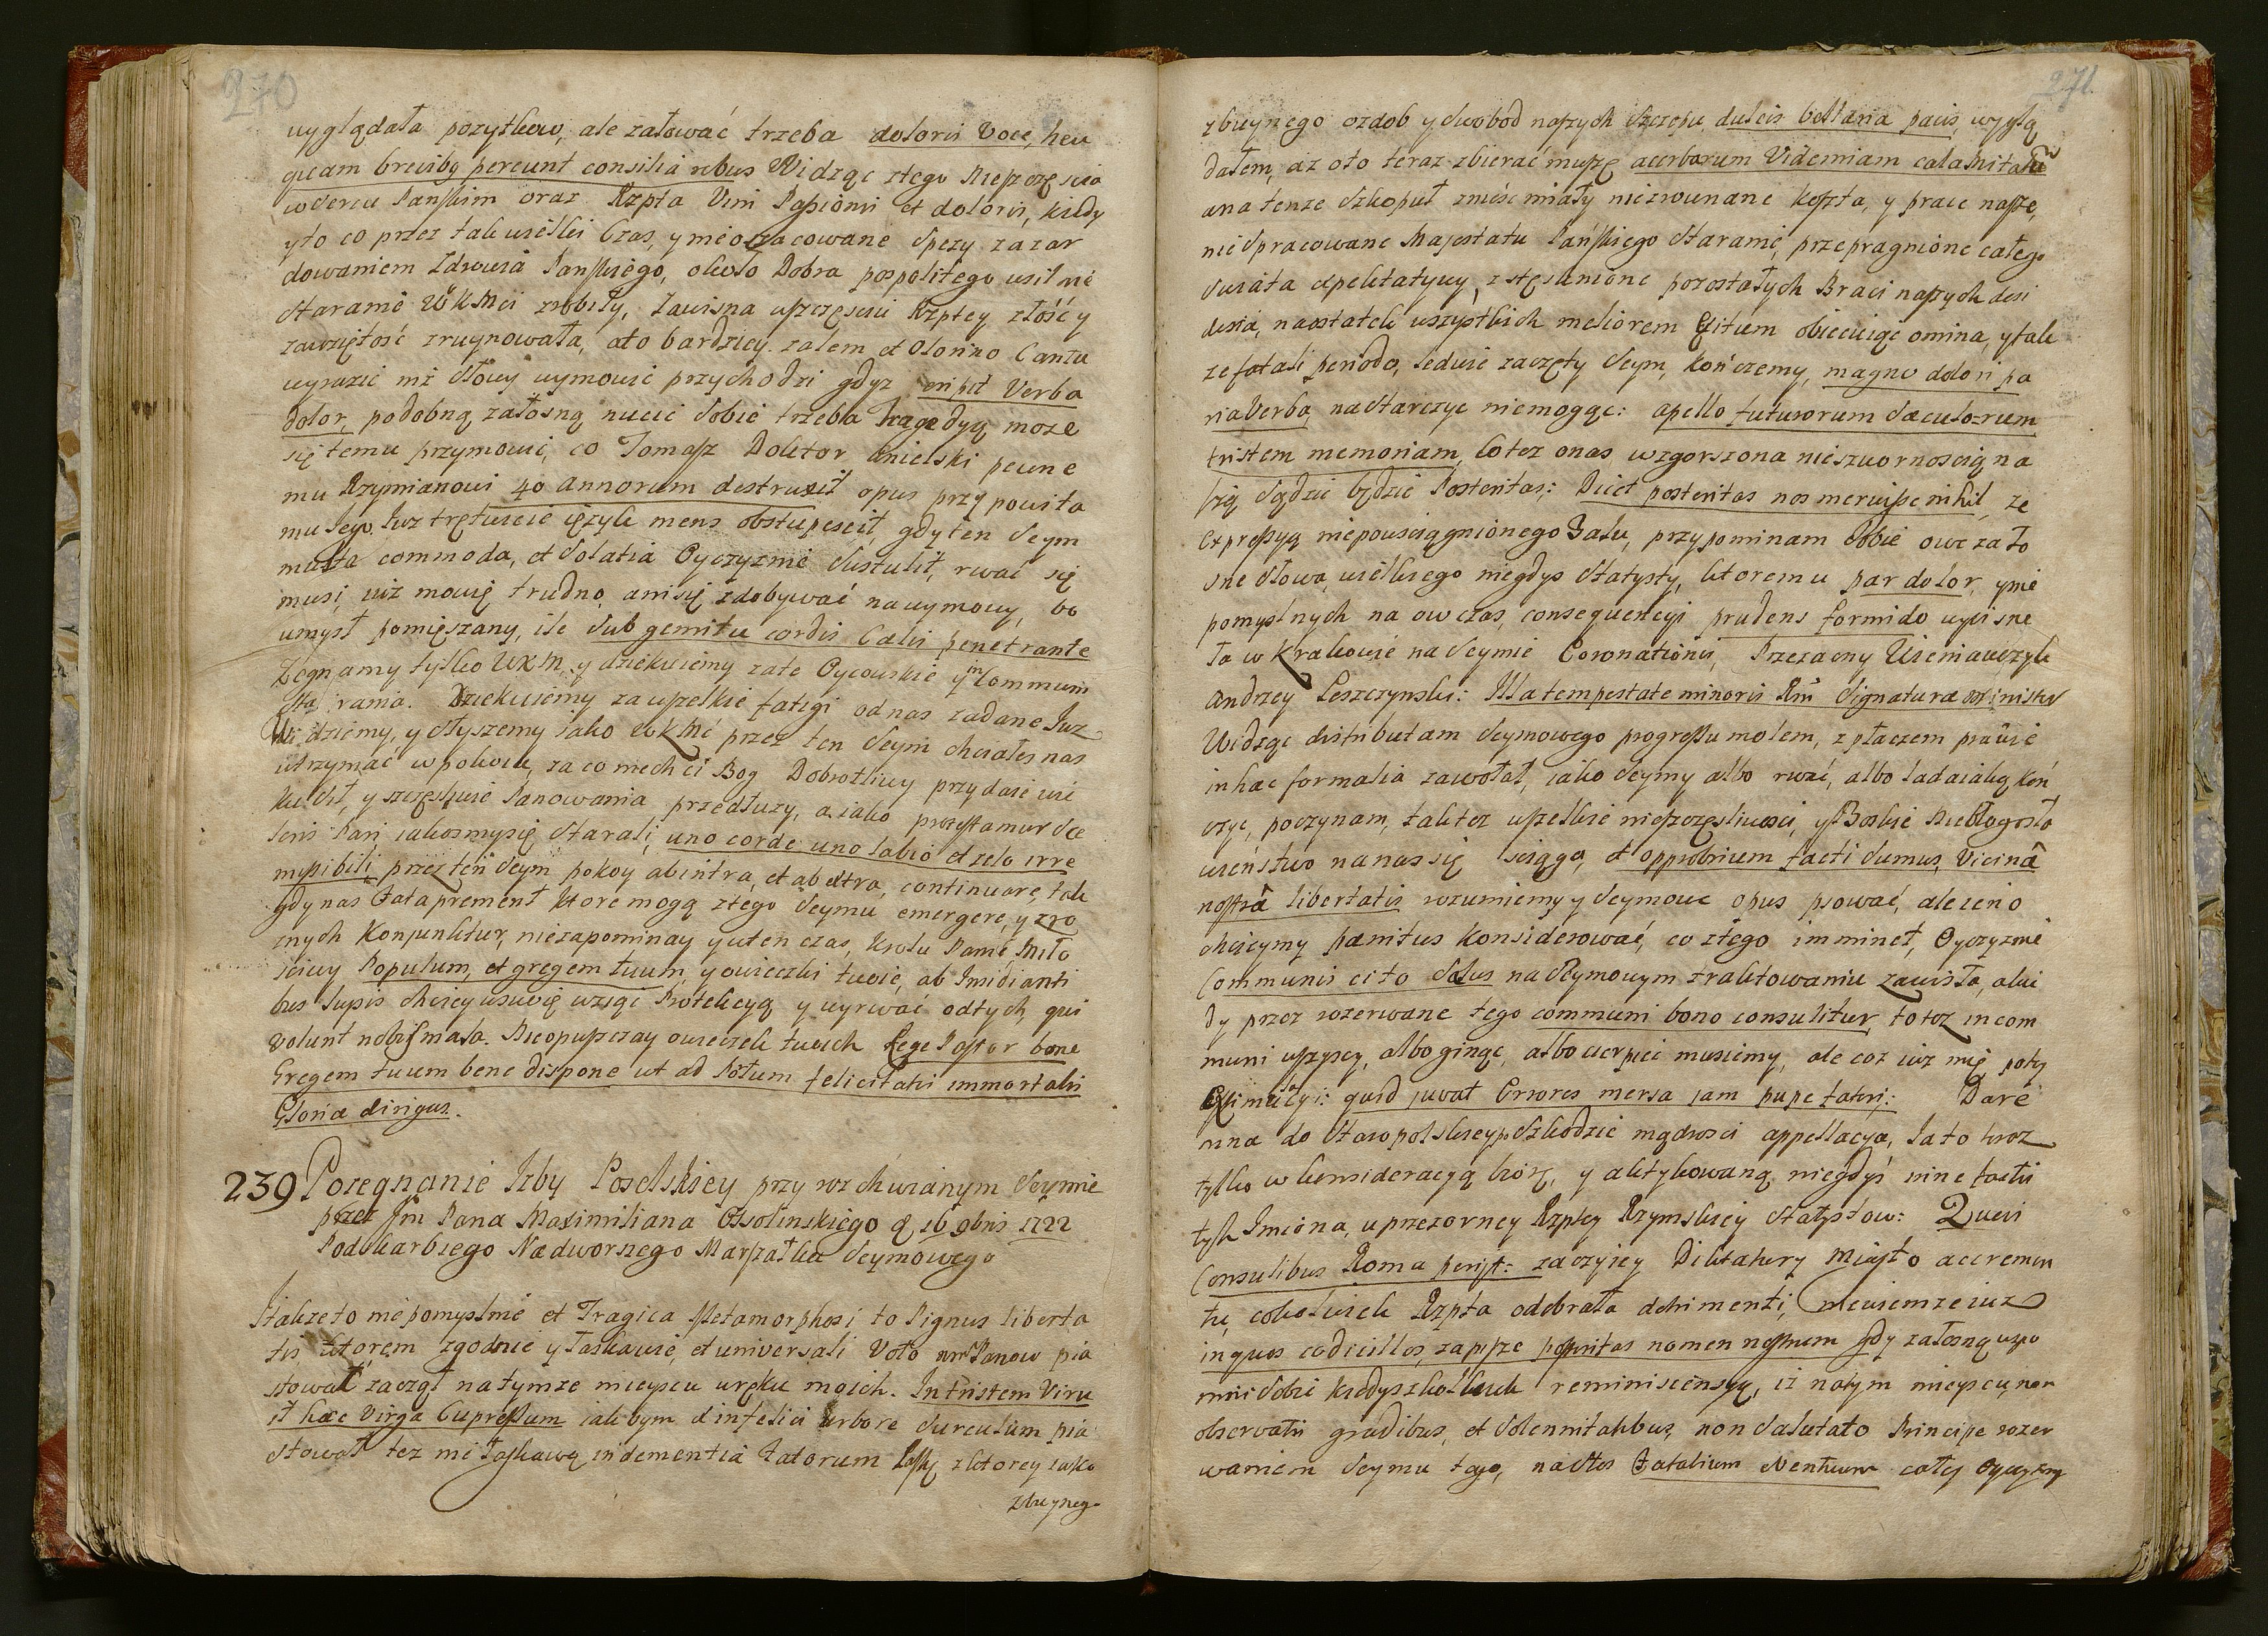 270
wyglądała pozytkow, ale załować trzeba doloris Voce, heu
quam brevibg pereunt consilia rebus Widząc złego Nieszczęscia
w Sercu Panskim oraz Rzpta Vim Passionis et doloris, kiedy
y to co przez tak wielki Czas, y nieoszacowane Spezy zazar
dowaniem Zdrowia Panskiego, około Dobra pospolitego usilnie
staranie WKMci zrobiły, Zawisna uszczęsciu Rzptey złość y
zawziętosć zruynowała, ato bardziey zalem et Olorino Cantu
wyrazic niż słowy wymowić przychodzi gdyz eripit Verba
dolor, podobną załosną nucić sobie trzeba tragedyą moze
się temu przymowić, co Tomasz Doktor Anielski pewne
mu Rzymianowi 40 annorum destruxit opus przypowita
mu Jego. Juz trętwieie ięzyk mens obstupescit, gdy ten Seym
multa commoda, et Solatia Oyczyznie Sustulit, rwać się
musi, iuż mowię trudno, ani się zdobywać na wymowy, bo
umysł pomięszany, ile Sub gemitu cordis Cælis penetrante
Zegnamy tylko WKM. y dziekuiemy zate Oycowskie in Commune
sta rania. Dziekuiemy zauszelkie fatygi od nas zadane Juz
Widziemy, y słyszemy iako WKMć przez ten Seym chciałes nas
utrzymać w pokoiu, za co niech ci Bog Dobrotliwy przydaie wie
ku Lat, y szczęsliwie Panowania przedłuzy, a iako protestamur Sce
leris Pari iakosmysię starali, uno corde uno labio et zelo irre
missibili, przez ten Seym pokoy ab intra, et ab extra, continuare, tak
gdy nas Fata prement ktore mogą złego Seymu emergere, y zro
znych Konjunktur, niezapominay y w ten czas, Krolu Panie Miło
sciwy Populum, et gregem tuum, y owieczki twoie, ab Insidianti
bus lupis chciey w swoię wziąc Protekcyą y wyrwać od tych, qui
volunt nobis mala. Nieopuszczay owieczek twoich Rege Pastor bone
Gregem tuum bene dispone ut ad Portum felicitatis immortalis
Gloria dirigas.
239 Pozegnanie Izby Poselskiey przy rozchwianym Seymie
przez Jm Pana Maximiliana Ossolinskiego d 16 9bris 1722
Podskarbiego Nadwornego Marszałka Seymowego
Itakzeto niepomyslnie et Tragica Metamorphosi to Pignus liberta
tis ktorem zgodnie y łaskawie, et universali Voto Panow pia
stował zaczął na tymze mieyscu w ręku moich. In tristem Viru
it hæc Virga Cupressum iak bym ex infelici arbore Surculum pia
stował tez mi łaskawą indementia Fatorum laskę z ktorey iako
zbuyneg-
271.
zbuynego ozdob y swobod naszych Szczepu dulcis bellaria pacis, wyglą
dałem, aż oto teraz zbierać muszę acerbarum Videmiam calamitatū
a na tenze Szkopuł znieść miały niezrownane koszta, y prace nasze,
nie Spracowane Majestatu Pańskiego staranie, przepragnione całego
Swiata expektatywy, z stęsknione pozostałych Braci naszych desi
deria, naostatek wszystkich meliorem Exitum obiecuiąc omina, y tak
ze fatali periodo, ledwie zaczęty Seym, kończemy, magno dolori pa
ria Verba, nastarczyc niemogąc: apello futurorum sæculo-rum
tristem memoriam, bo tez o nas wzgorszona niezwornoscią na
szą Sądzić będzie Posteritas: Dicet posteritas nos meruisse nihil, ze
Expressyą niepowsciągnionego Zalu, przypominam sobie owe zało
sne słowa, wielkiego niegdys Statysty, ktoremu par dolor, y nie
pomyslnych na ow czas, consequencyi prudens formido wycisne
ła w Krakowie na Seymie Coronationis, Przezacny Wieniawczyk
Andrzey Leszczynski: Illa tempestate minoris Rni Signaturæ Minister
Widząc disturbatam Seymowego progressu molem, z płaczem prawie
in hæc formalia zawołał, iako Seymy albo rwać, albo ladaiaką koń
czyc, poczynam, tak tez uszelkie nieszczęsliwosci, y Boskie Niebłogosła
wieństwo na nas się sciąga, et opprobrium facti sumus, Vicinâ
nostrâ libertatis rozumiemy y Seymowe opus psować, ale ieno
chcieymy pænitus Konsiderować, co złego imminet, Oyczyznie
Communis ei to Salus na Seymowym traktowaniu zawisła, a kie
dy przez rozerwanie tego communi bono consulitur to toz in com
muni uszyscy, albo ginąc, albo cierpieć musiemy, ale coz iuż mię poty
Exlimacyi: quid juvat Errores mersa jam puppe fateri: Dare
mna do Staropolskiey po Szkodzie mądrosci appellacya, Ja to teraz
tylko w konsideracyą biorę, y aktykowaną niegdyś inne faetis
tysk Imiona, u przezorney Rzpltey Rzymskiey Statystow: Queis
Consulibus Roma perijt: zaczyiey Diktatury Miasto accremen
tu, cokolwiek Rzpta odebrała detrimenti, niewiem ze iuz
in quos codicillos, zapisze posteritas nomen nostrum gdy załosną wspo
mni sobie kiedyszkolwiek reminiscensyą, iż na tym mieyscu, non
observatis gradibus, et Solennitatibus, non Salutato Principe rozer
waniem Seymu tego, nastos Fatalium Nentium całey Oyczyzny